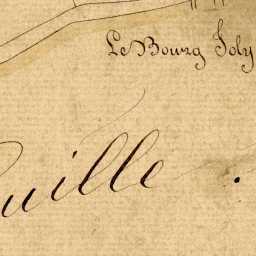 Le Bourg Joly
uille .